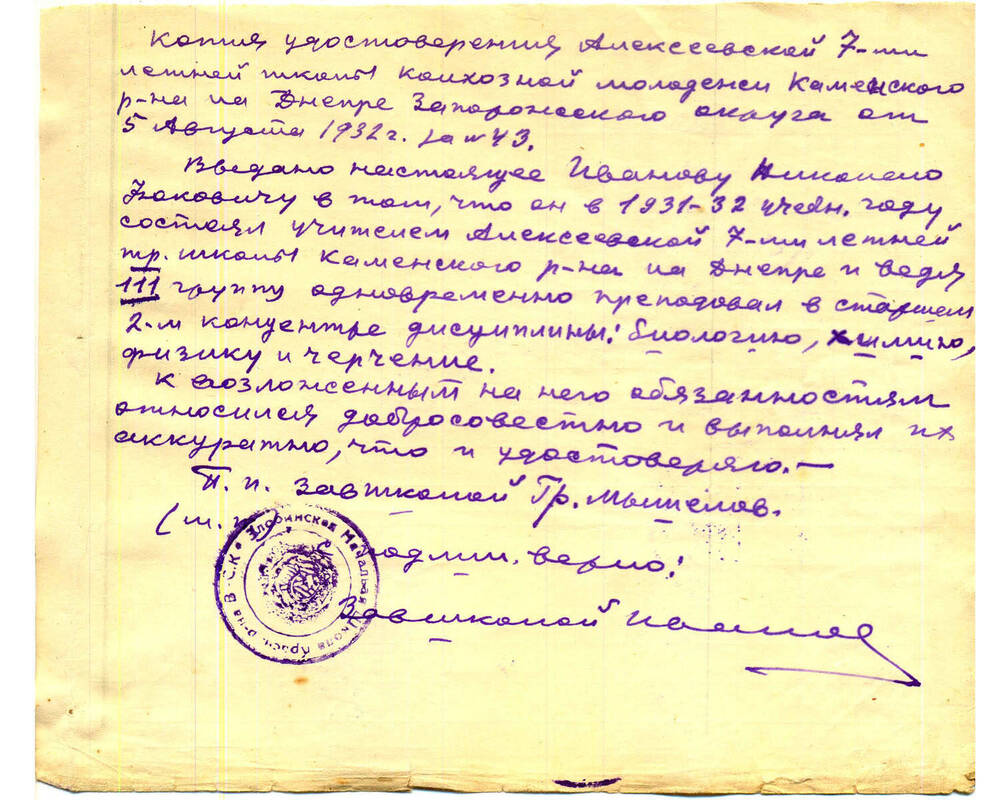 Копия удостоверения Алексеевской 7-ми
летней школы колхозной молодежи Каменского
р-на на Днепре Запорожского округа от
5 Августа 1932 г. за № 43.
Выдано настоящее Иванову Николаю
в том, что он в 1931-32 учебн. году
состоял учителем Алексеевской 7-ми летней
тр. школы Каменского р-на на Днепре и ведя
111 группу одновременно преподовал в старшем
2-м концентре дисциплины: биологию, химию,
физику и черчение.
К возложенным на него обязанностям
относился добросовестно и выполнял их
аккуратно, что и удостоверяю.—
П. п. Завшколой Гр. Мышелов.
(м.
верно:
Завшколой Иванов
Злобинская Начальная Школа Красн. р-на В-С.К.